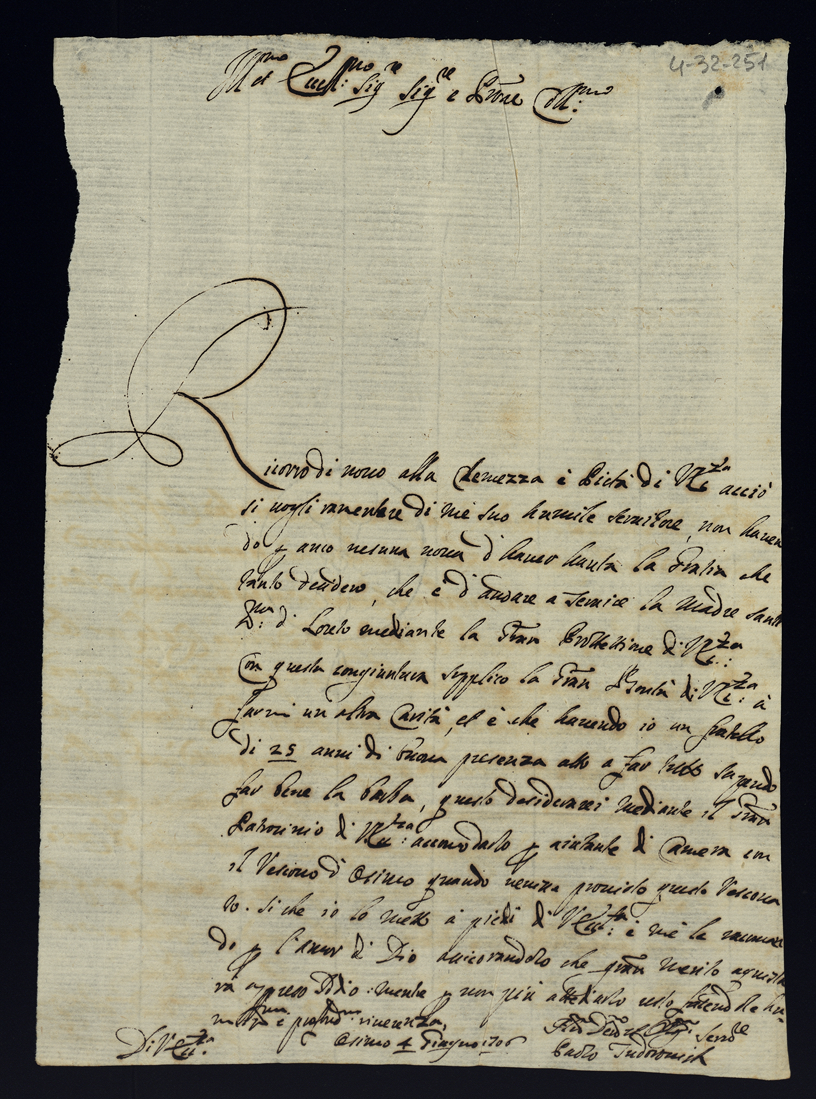 4-32-251
Ill.mo et Ecell.mo Sig.re Sig.re e Prone Coll.mo
Ricorro di novo alla Clemezza è Pietà di V.Ecc.za acciò
si vogli ramentare di me suo humile servitore, non haven
do p anco nesuna nova d'haver hauta la Gratia che
tanto desidero, che è d'andare a servire la Madre Santi
di Loreto mediante la Gran Protettione di V.Ecc.za
Con questa congiuntura supplico la Gran Bontà di V.Ecc.za à
farmi un altra Carità, et è che havendo io un fratello
di 25 anni di buona presenza atto a far tutto sapendo
far bene la Barba, questo desiderarei mediante il Gran
Patrocinio di V.Ecc.za accomodarlo p aiutante di Camera con
il Vescovo d'Osimo quando veniva provisto questo Vescova
to. Si che io lo metto à piedi di V.Ecc.za è me le raccoman
do p l'amor di Dio assicurandolo che gran merito aquista
rà apreso Iddio: mentre p non più attediarlo resto facendole hu
e profond.ma riverenza,
Di V.Ecc.za
Osimo 4 Giugno 1706
Serv.re
Paolo